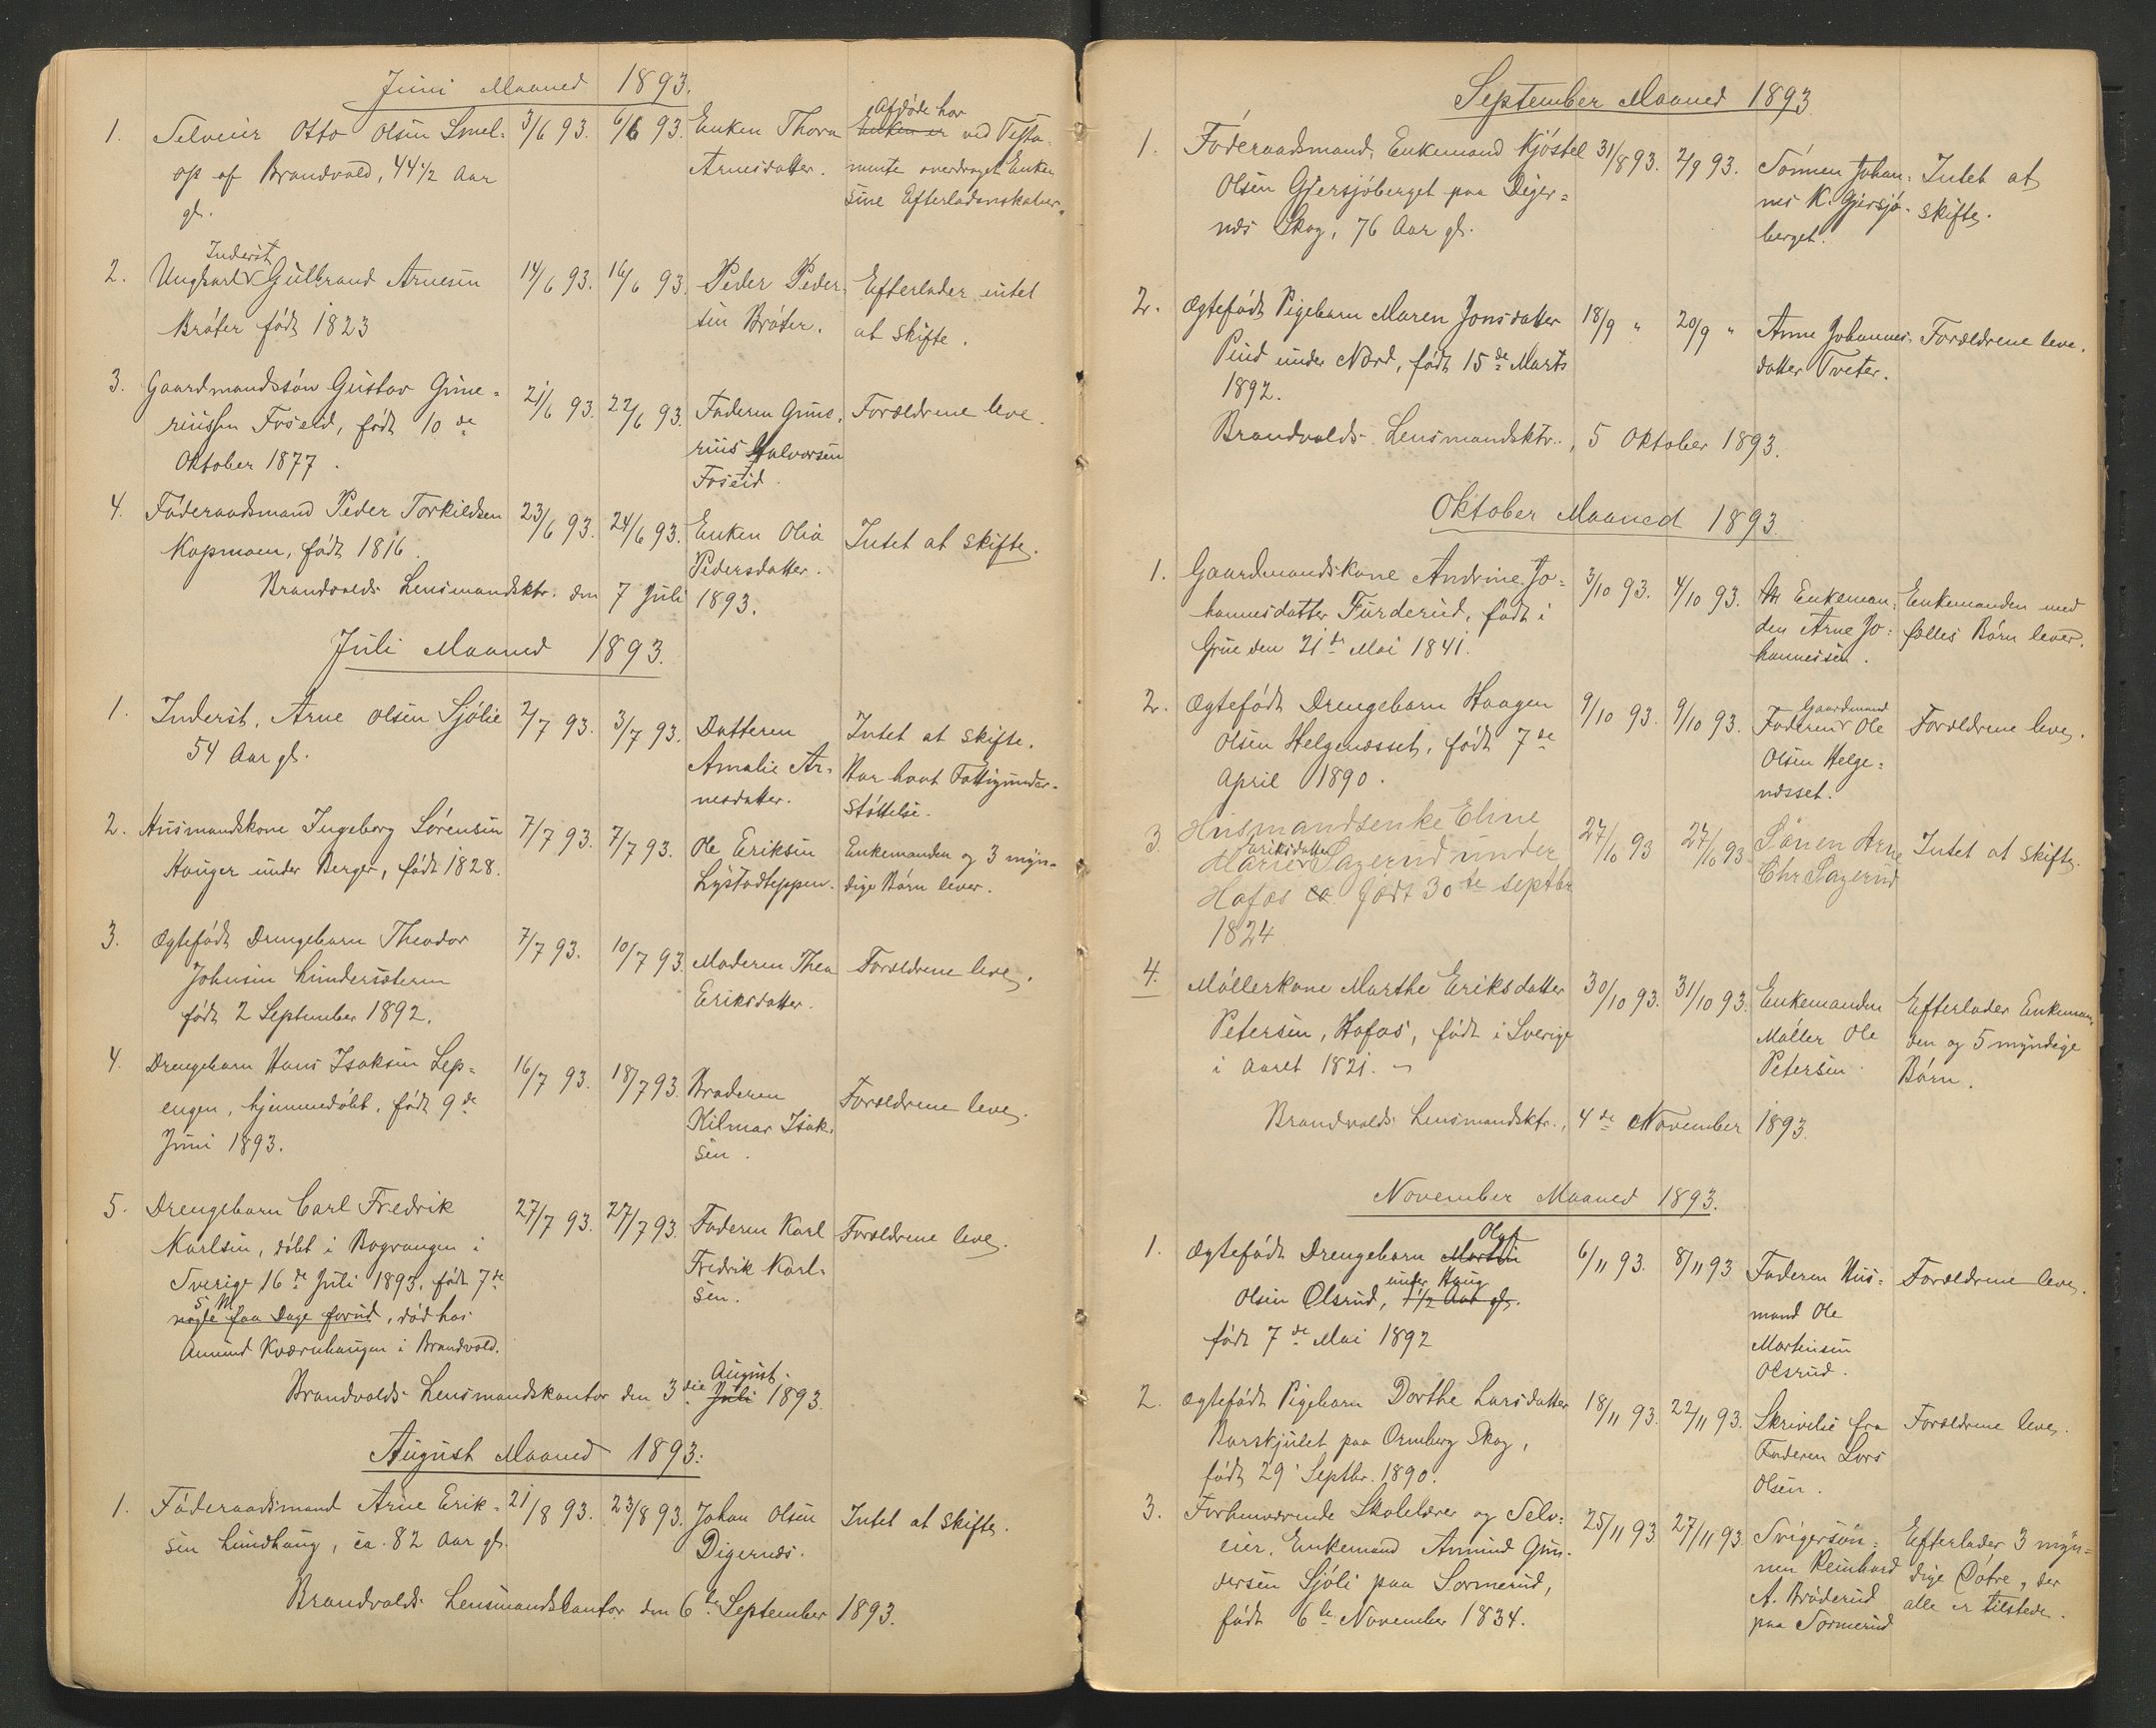 Juni Maaned 1893.
1. Selveier Otto Olsen Smel- 3/6 93. 6/6 93. Enken Thora Afdøde har Enken er ved Testa-
op af Brandvold, 44 1/2 Aar Arnesdatter. mente overdraget Enken
gl. sine Efterladenskaber.
Inderst
2. Ungkarl Gulbrand Arnesen 14/6 93. 16/6 93. Peder Peder- Efterlader intet
Bråter født 1823 sen Bråter. at skifte.
3. Gaardmandssøn Gustav Gune- 21/6 93. 22/6 93. Faderen Gune- Forældrene leve.
riussen Foseid, født 10de rius Halvorsen
Oktober 1877. Foseid.
4. Føderaadsmand Peder Torkildsen 23/6 93. 24/6 93. Enken Olia Intet at skifte.
Kopmoen, født 1816. Pedersdatter.
Brandvolds Lensmandsktr. den 7 Juli 1893.
Juli Maaned 1893.
1. Inderst, Arne Olsen Sjølie 2/7 93. 3/7 93. Datteren Intet at skifte.
54 Aar gl. Amalie Ar- Har havt Fattigunder-
nesdatter. støttelse.
2. Husmandskone Ingeborg Sørensen 7/7 93. 7/7 93. Ole Eriksen Enkemanden og 3 myn-
Hauger under Berger, født 1828. Lystadteppen. dige Børn lever.
3. Ægtefødt Drengebarn Theodor 7/7 93. 10/7 93. Moderen Thea Forældrene leve.
Johnsen Lindersæteren Eriksdatter.
født 2 September 1892.
4. Drengebarn Hans Isaksen Lep- 16/7 93. 18/7 93. Broderen Forældrene leve.
engen, hjemmedøbt, født 9de Hilmar Isak-
Juni 1893. sen.
5. Drengebarn Carl Fredrik 27/7 93. 27/7 93. Faderen Karl Forældrene leve.
Karlsen, døbt i Bogvangen i Fredrik Karl-
Sverige 16de Juli 1893, født 7de sen.
s. M.
nogle faa Dage forud, død hos
Amund Kværnhaugen i Brandvold.
August
Brandvolds Lensmandskontor den 3die Juli 1893.
August Maaned 1893.
1. Føderaadsmand Arne Erik- 21/8 93. 23/8 93. Johan Olsen Intet at skifte.
sen Lundhaug, ca. 82 Aar gl. Digernæs.
Brandvolds Lensmandskontor den 6te September 1893.
September Maaned 1893
1. Føderaadsmand, Enkemand Kjøstel 31/8 93. 2/9 93. Sønnen Johan- Intet at
Olsen Gjersjøberget paa Diger- nes K. Gjersjø- skifte.
næs Skog, 76 Aar gl. berget.
2. Ægtefødt Pigebarn Maren Jonsdatter 18/9 " 20/9 " Anne Johannes- Forældrene leve.
Pind under Nord, født 15de Marts datter Tveter.
1892.
Brandvolds Lensmandsktr., 5 Oktober 1893.
Oktober Maaned 1893.
1. Gaardmandskone Andrine Jo- 3/10 93. 4/10 93. Enkeman- Enkemanden med
hannesdatter Furderud, født i den Arne Jo- fælles Børn lever.
Grue den 21de Mai 1841. hannessen.
2. Ægtefødt Drengebarn Haagen 9/10 93. 9/10 93. Faderen Gaardmand Ole Forældrene leve.
Olsen Helgenæsset, født 7de Olsen Helge-
April 1890. næsset.
3. Husmandsenke Eline 27/10 93 27/10 93 Sønen Arne Intet at skifte.
Marie Eriksdatter Lazerud under Chr Lazerud
Hofos ca født 30te septbr
1824
4. Møllerkone Marthe Eriksdatter 30/10 93. 31/10 93. Enkemanden Efterlader Enkeman-
Petersen, Hofos, født i Sverige Møller Ole den og 5 myndige
i Aaret 1821. Petersen. Børn.
Brandvolds Lensmandsktr., 4de November 1893.
November Maaned 1893.
Olaf
1. Ægtefødt Drengebarn Martin 6/11 93. 8/11 93 Faderen Hus- Forældrene leve.
under Haug
Olsen Olsrud, 1 1/2 Aar gl. mand Ole
født 7de Mai 1892 Martinsen
Olsrud.
2. Ægtefødt Pigebarn Dorthe Larsdatter 18/11 93. 22/11 93. Skrivelse fra Forældrene leve.
Barskjulet paa Ormberg Skog, Faderen Lars
født 29 Septbr. 1890. Olsen.
3. Forhenværende Skolelærer og Selv- 25/11 93. 27/11 93. Svigersøn- Efterlader 3 myn-
eier, Enkemand Amund Gun- nen Reinhard dige Døtre, der
dersen Sjøli paa Sormerud, A. Bråderud alle er tilstede.
født 6te November 1834. paa Sormerud